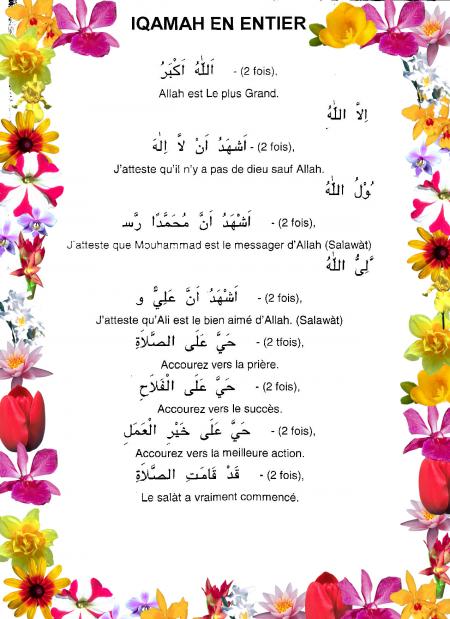 IQAMAH EN ENTIER
اَللّٰهُ اَكْبَرُ - (2 fois),
Allah est Le plus Grand.
اِلاَّ اللّٰهُ
اَشْهَدُ اَنْ لاَّ اِلٰهَ - (2 fois),
J'atteste qu'il n'y a pas de dieu sauf Allah.
ُوْلُ اللّٰهُ
اَشْهَدُ اَنَّ مُحَمَّدًا رَّسـ - (2 fois),
J'atteste que Mouhammad est le messager d'Allah (Salawàt)
َلِىُّ اللّٰهُ
اَشْهَدُ اَنَّ عَلِيٌّ و - (2 fois),
J'atteste qu'Ali est le bien aimé d'Allah. (Salawàt)
حَيَّ عَلَى الصَّلاَةِ - (2 tfois),
Accourez vers la prière.
حَيَّ عَلَى الْفَلاَحِ - (2 fois),
Accourez vers le succès.
حَيَّ عَلَى خَيْرِ الْعَمَلِ - (2 fois),
Accourez vers la meilleure action.
قَدْ قَامَتِ الصَّلَاةِ - (2 fois),
Le salàt a vraiment commencé.